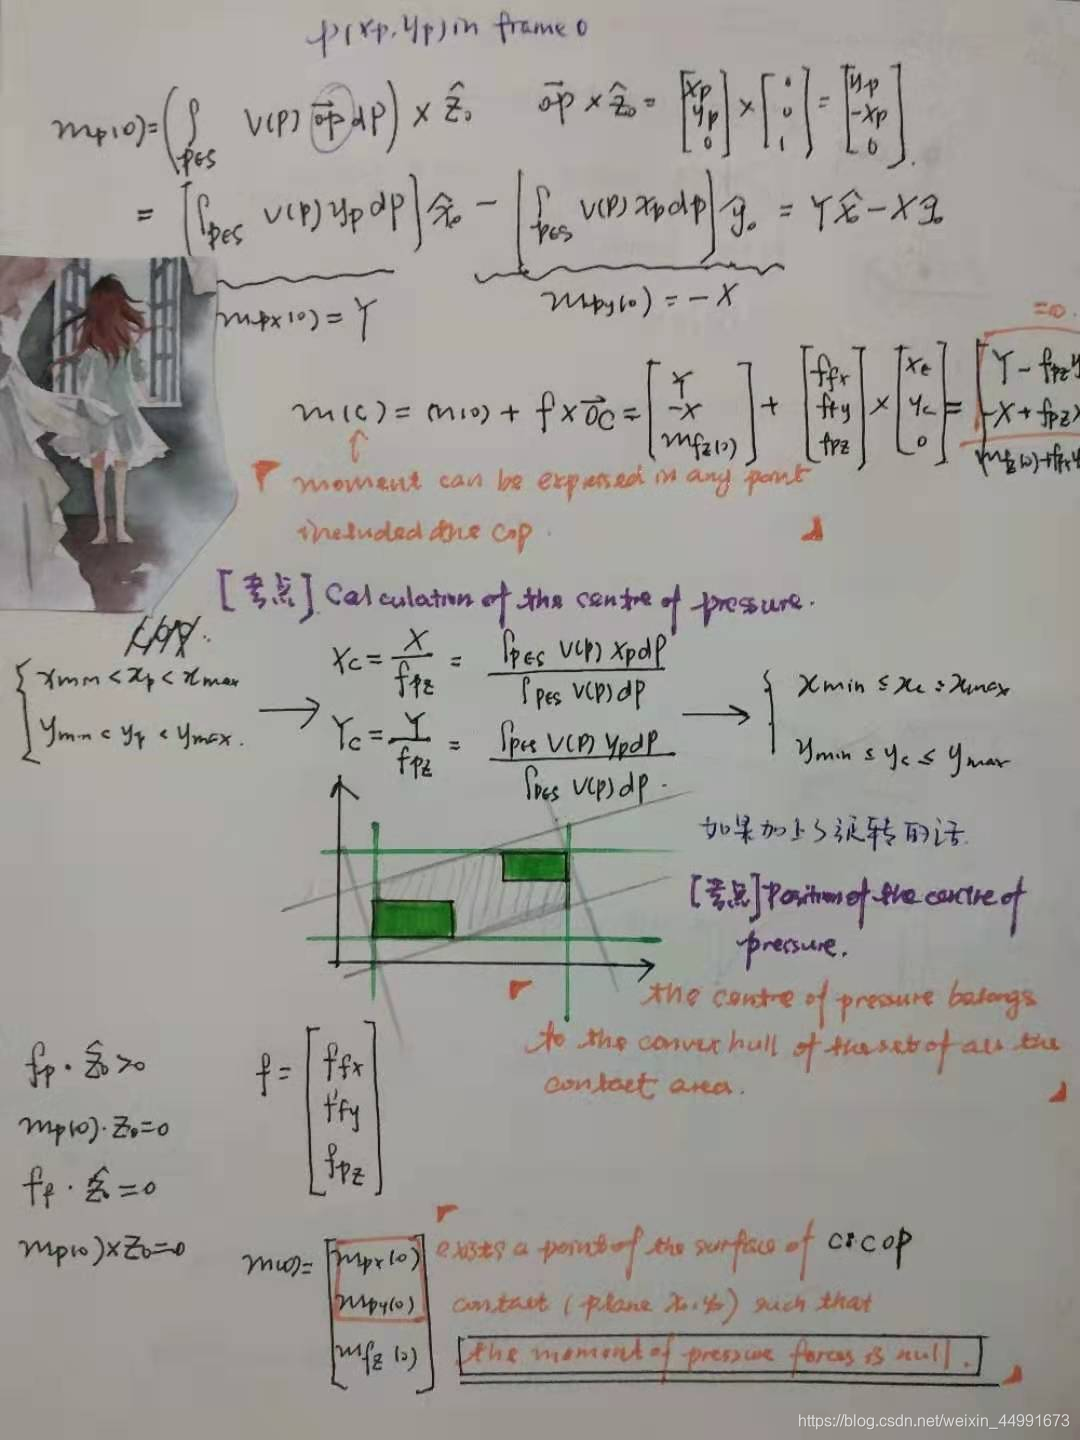 p(xp, yp) in frame 0
mp(0) = (∫p∈S V(p) op dp) × ẑ0    op × ẑ0 = [xp yp 0] × [0 0 1] = [yp -xp 0].
= [∫p∈S V(p) yp dp] x̂0 - [∫p∈S V(p) xp dp] ŷ0 = Y x̂0 - X ŷ0
mpx(0) = Y    mpy(0) = -X
=0.
m(c) = m(0) + f × OC = [Y -X mfz(0)] + [ffx ffy fpz] × [xc yc 0] = [Y - fpz y -X + fpz x mfz(0)+ffx
moment can be expressed in any point
included the cop.
[考点] Calculation of the centre of pressure.
{ xmin < xp < xmax
ymin < yp < ymax.
→ Xc = X / fpz = ∫p∈S V(p) xp dp / ∫p∈S V(p) dp
Yc = Y / fpz = ∫p∈S V(p) yp dp / ∫p∈S V(p) dp.
→ { xmin ≤ xc ≤ xmax
ymin ≤ yc ≤ ymax
如果加上了旋转的话.
[考点] Position of the centre of
pressure.
the centre of pressure belongs
to the convex hull of the set of all the
contact area.
fp · ẑ0 > 0
mp(0) · z0 = 0
ff · ẑ0 = 0
mp(0) × z0 = 0
f = [ffx ffy fpz]
m(0) = [mpx(0) mpy(0) mfz(0)]
exists a point of the surface of c:cop
contact (plane x0, y0) such that
the moment of pressure forces is null.
https://blog.csdn.net/weixin_44991673